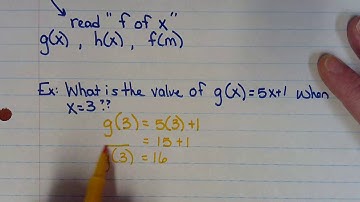 read "f of x"
g(x), h(x), f(m)
Ex: What is the value of g(x)=5x+1 when
x=3??
g(3) = 5(3)+1
= 15+1
g(3) = 16